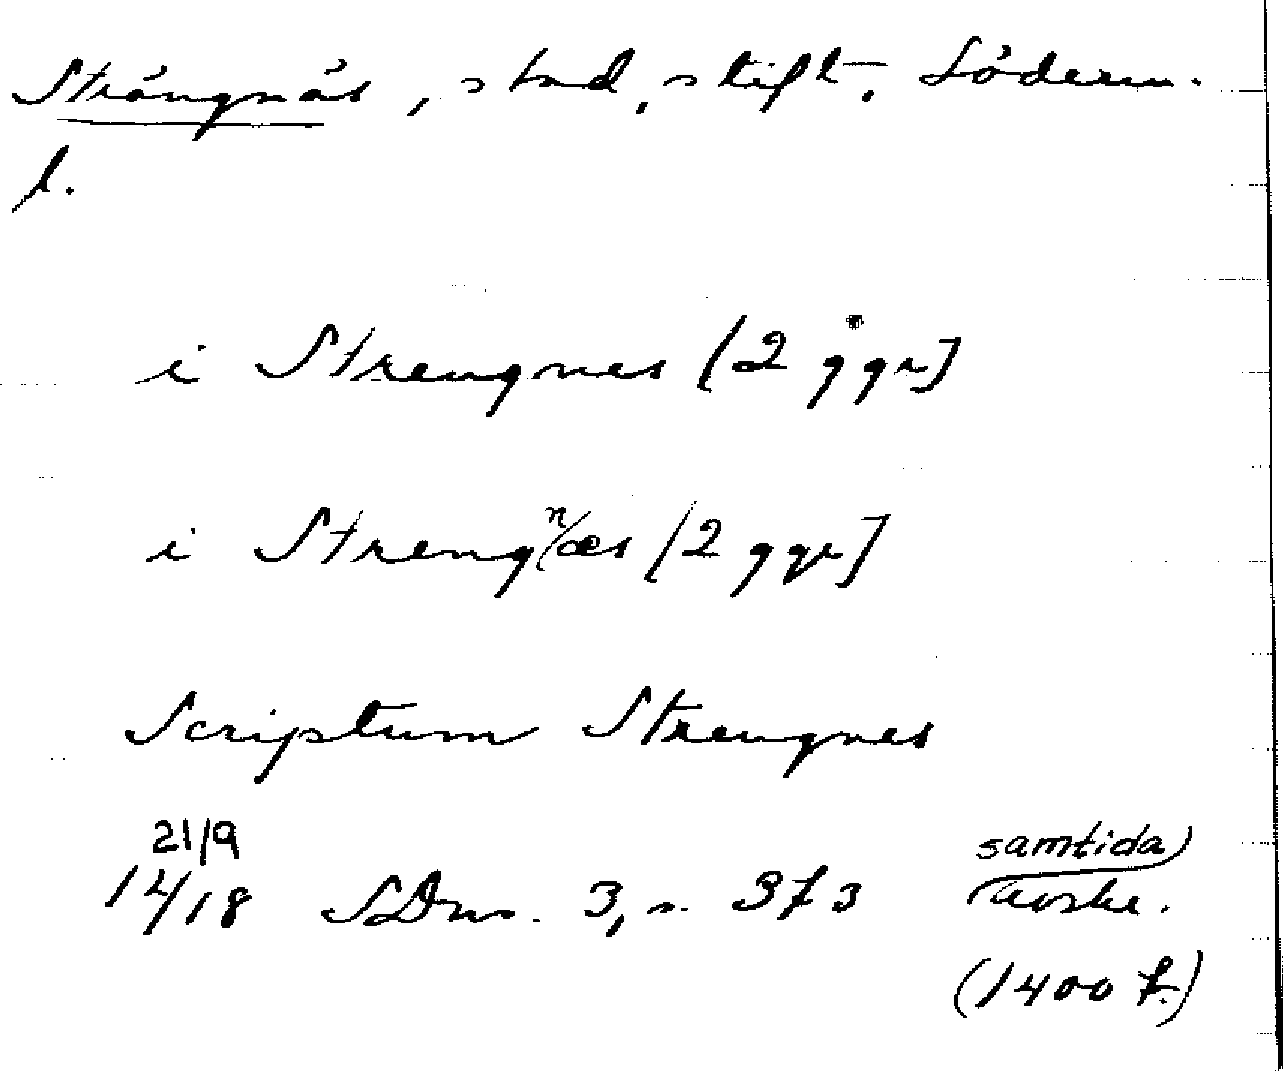 Strängnäs, stad, stift, Söderm.
l.
i Strengnes [2 ggr]
i Strengnæs [2 ggr]
Scriptum Strengnes
21/9
1418 SDns. 3, s. 373 samtida avskr.
(1400 f.)